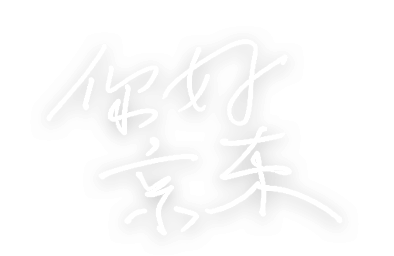 你好
京东